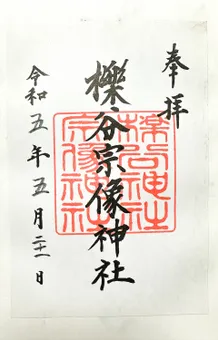 奉拝
櫟谷宗像神社
令和五年五月二十一日
櫟谷神社
宗像神社